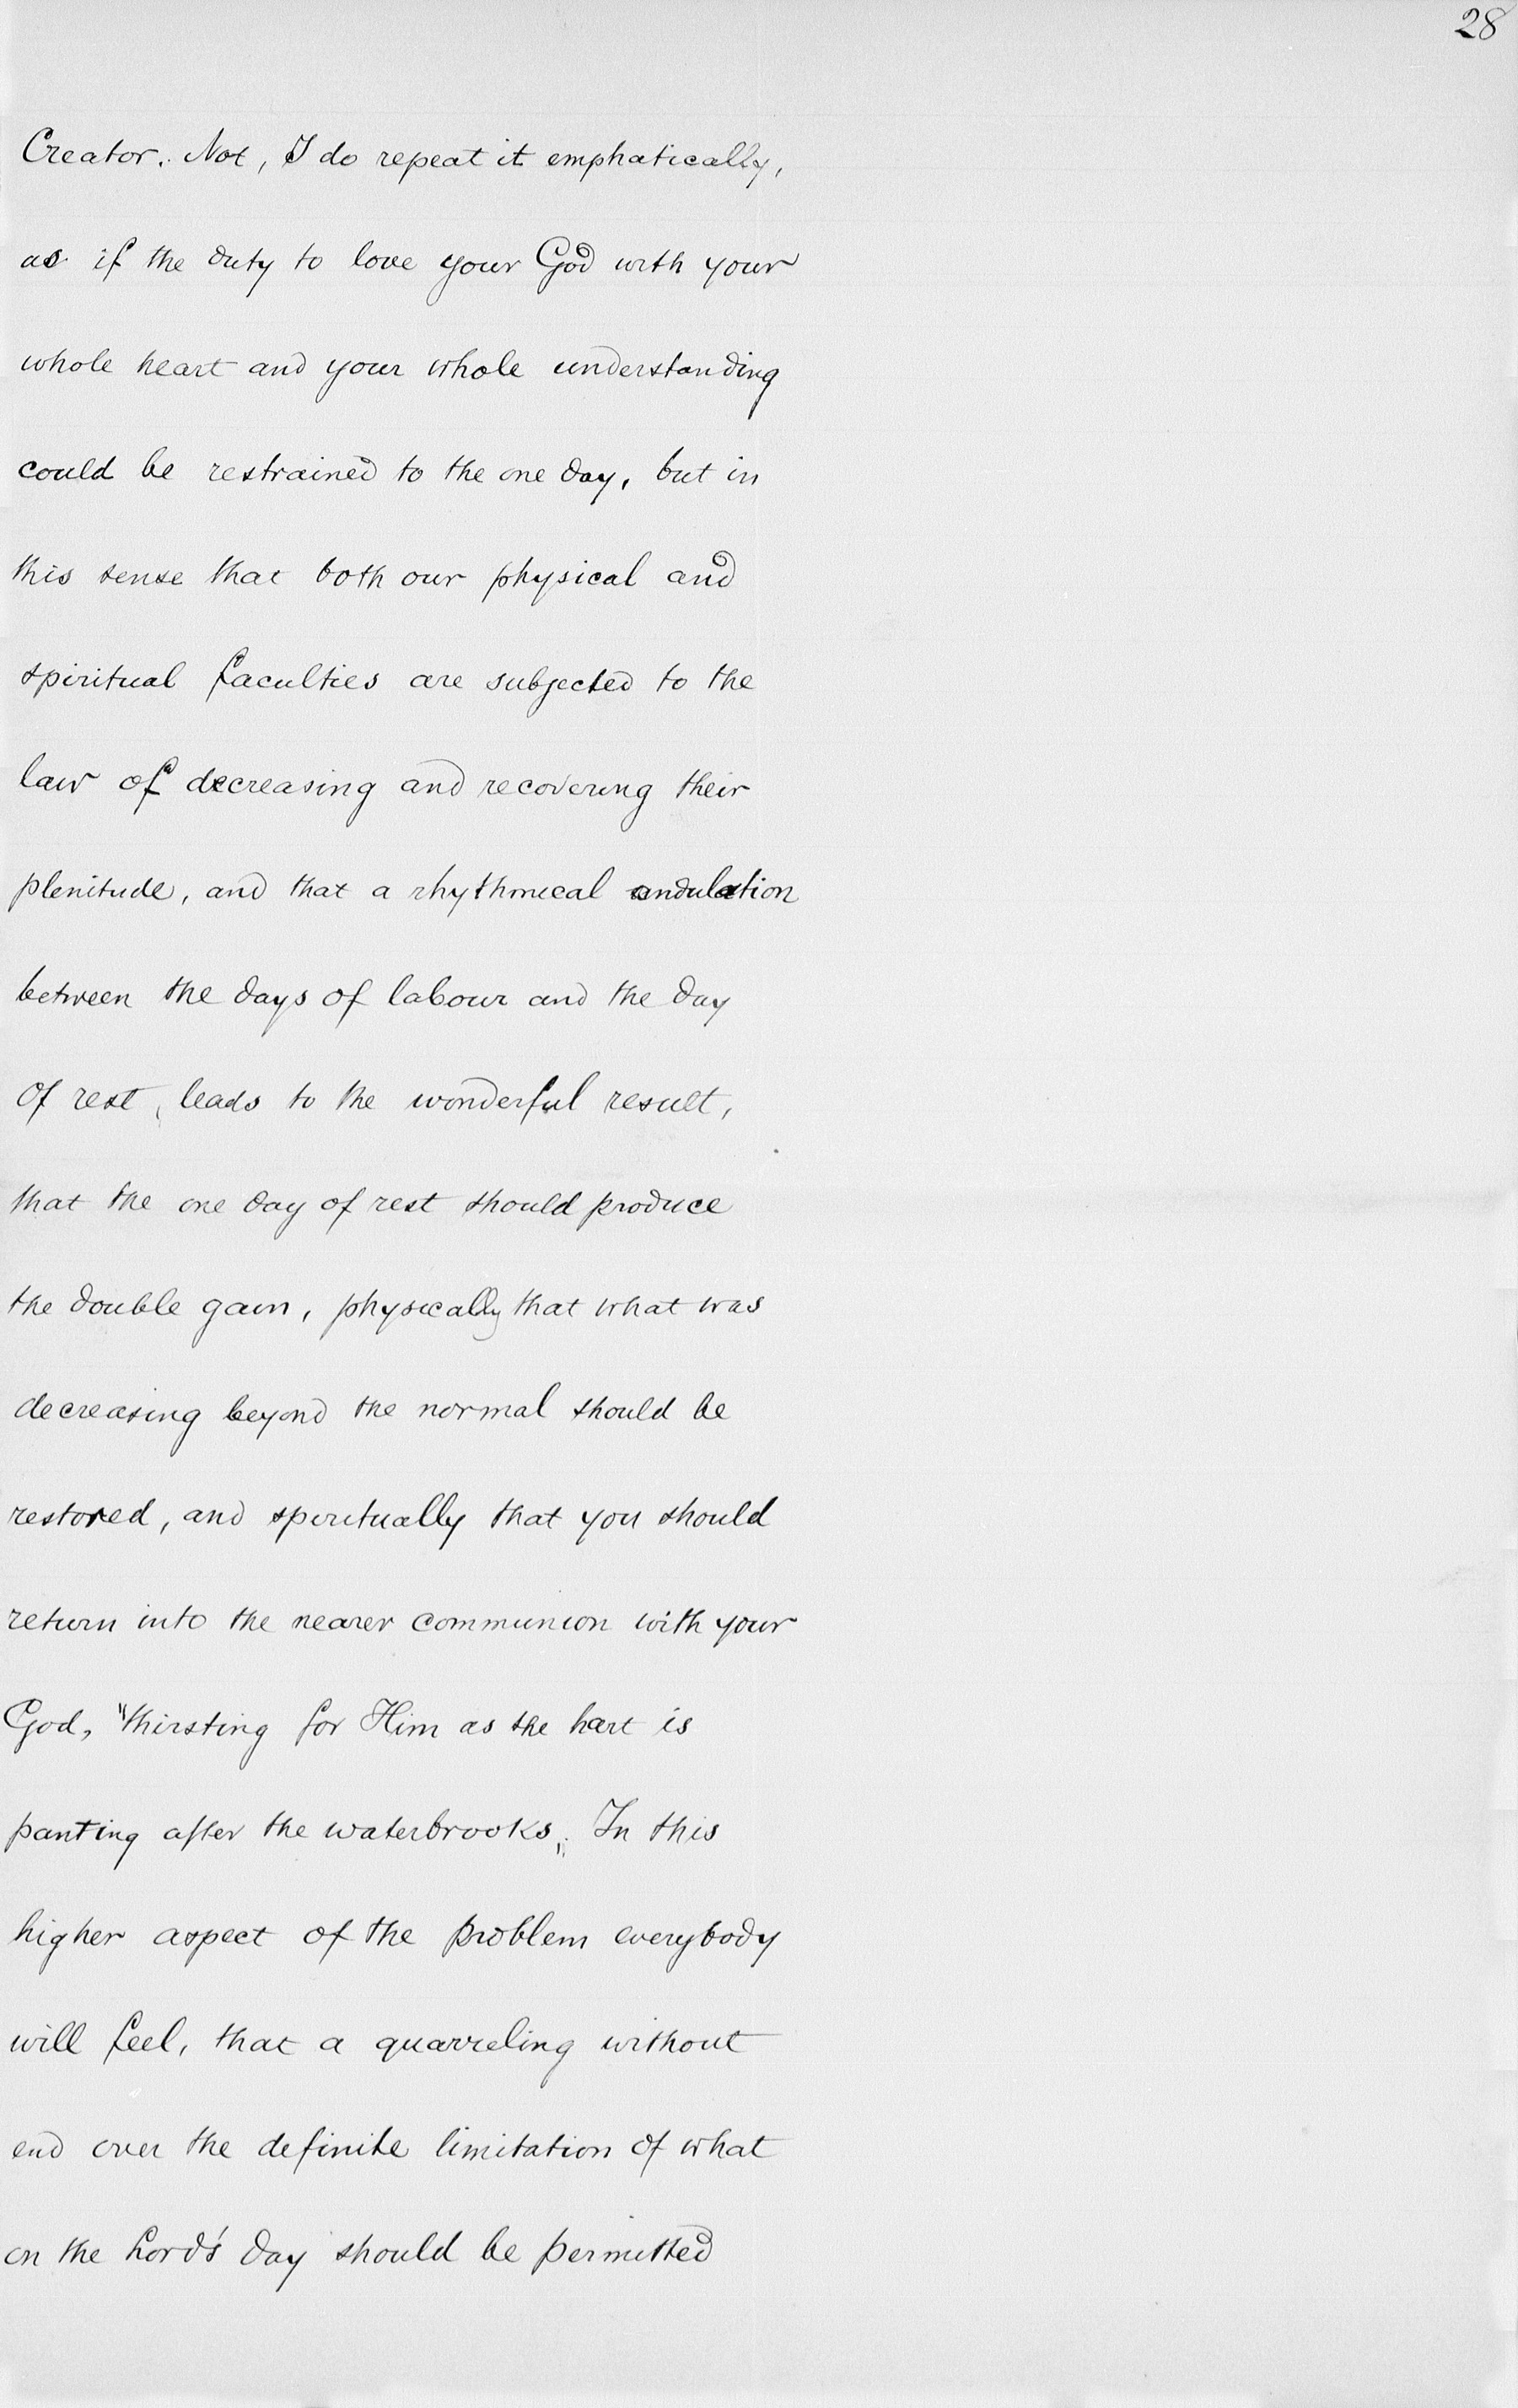 28
Creator. Not, I do repeat it emphatically,
as if the duty to love your God with your
whole heart and your whole understanding
could be restrained to the one day, but in
this sense that both our physical and
spiritual faculties are subjected to the
law of decreasing and recovering their
plenitude, and that a rhythmical undulation
between the days of labour and the day
of rest, leads to the wonderful result,
that the one day of rest should produce
the double gain, physically that what was
decreasing beyond the normal should be
restored, and spiritually that you should
return into the nearer communion with your
God, "thirsting for Him as the hart is
panting after the waterbrooks„. In this
higher aspect of the problem everybody
will feel, that a quarreling without
end over the definite limitation of what
on the Lord's day should be permitted